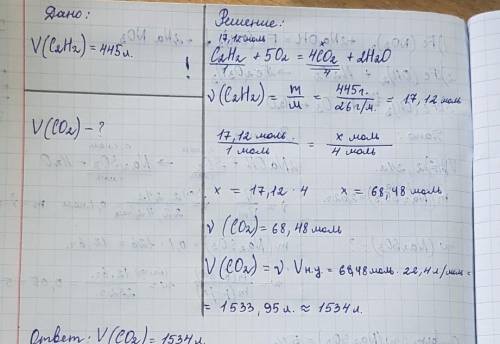 Дано:
V(C₂H₂) = 445 л.
!
V(CO₂) - ?
Решение:
17,12 моль x
C₂H₂ + 5O₂ = 4CO₂ + 2H₂O
1 4
ν(C₂H₂) = m/M = 445г./26 г/м. = 17,12 моль
17,12 моль./1 моль = x моль/4 моль
x = 17,12 · 4 x = 68,48 моль
ν(CO₂) = 68,48 моль
V(CO₂) = ν · Vн.у = 68,48 моль · 22,4 л/моль =
= 1533,95 л. ≈ 1534 л.
Ответ: V(CO₂) = 1534 л.